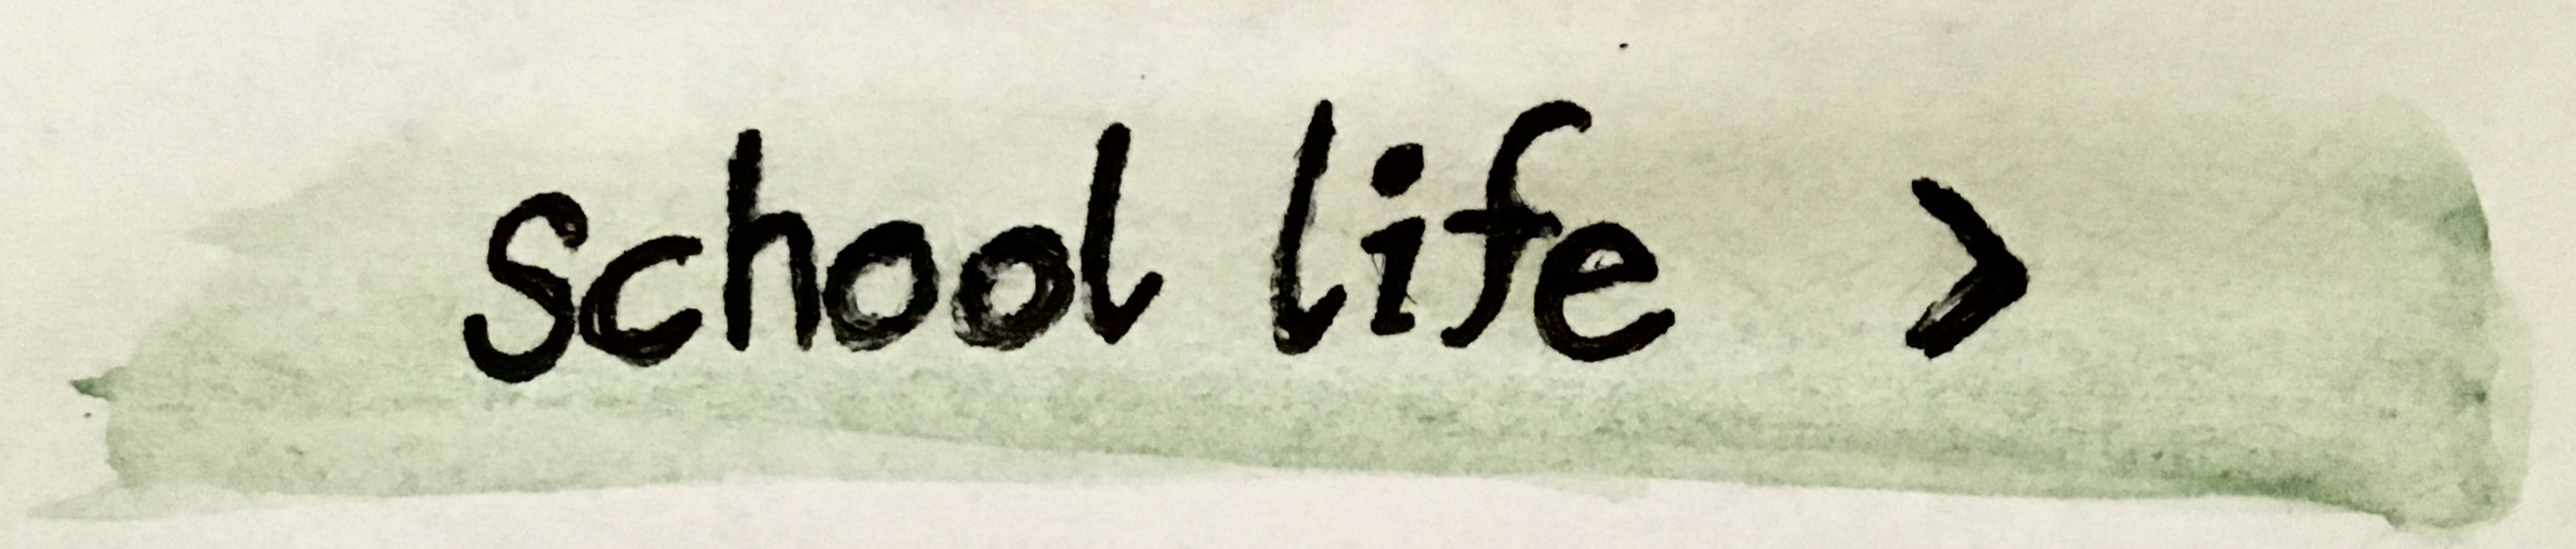 school life >